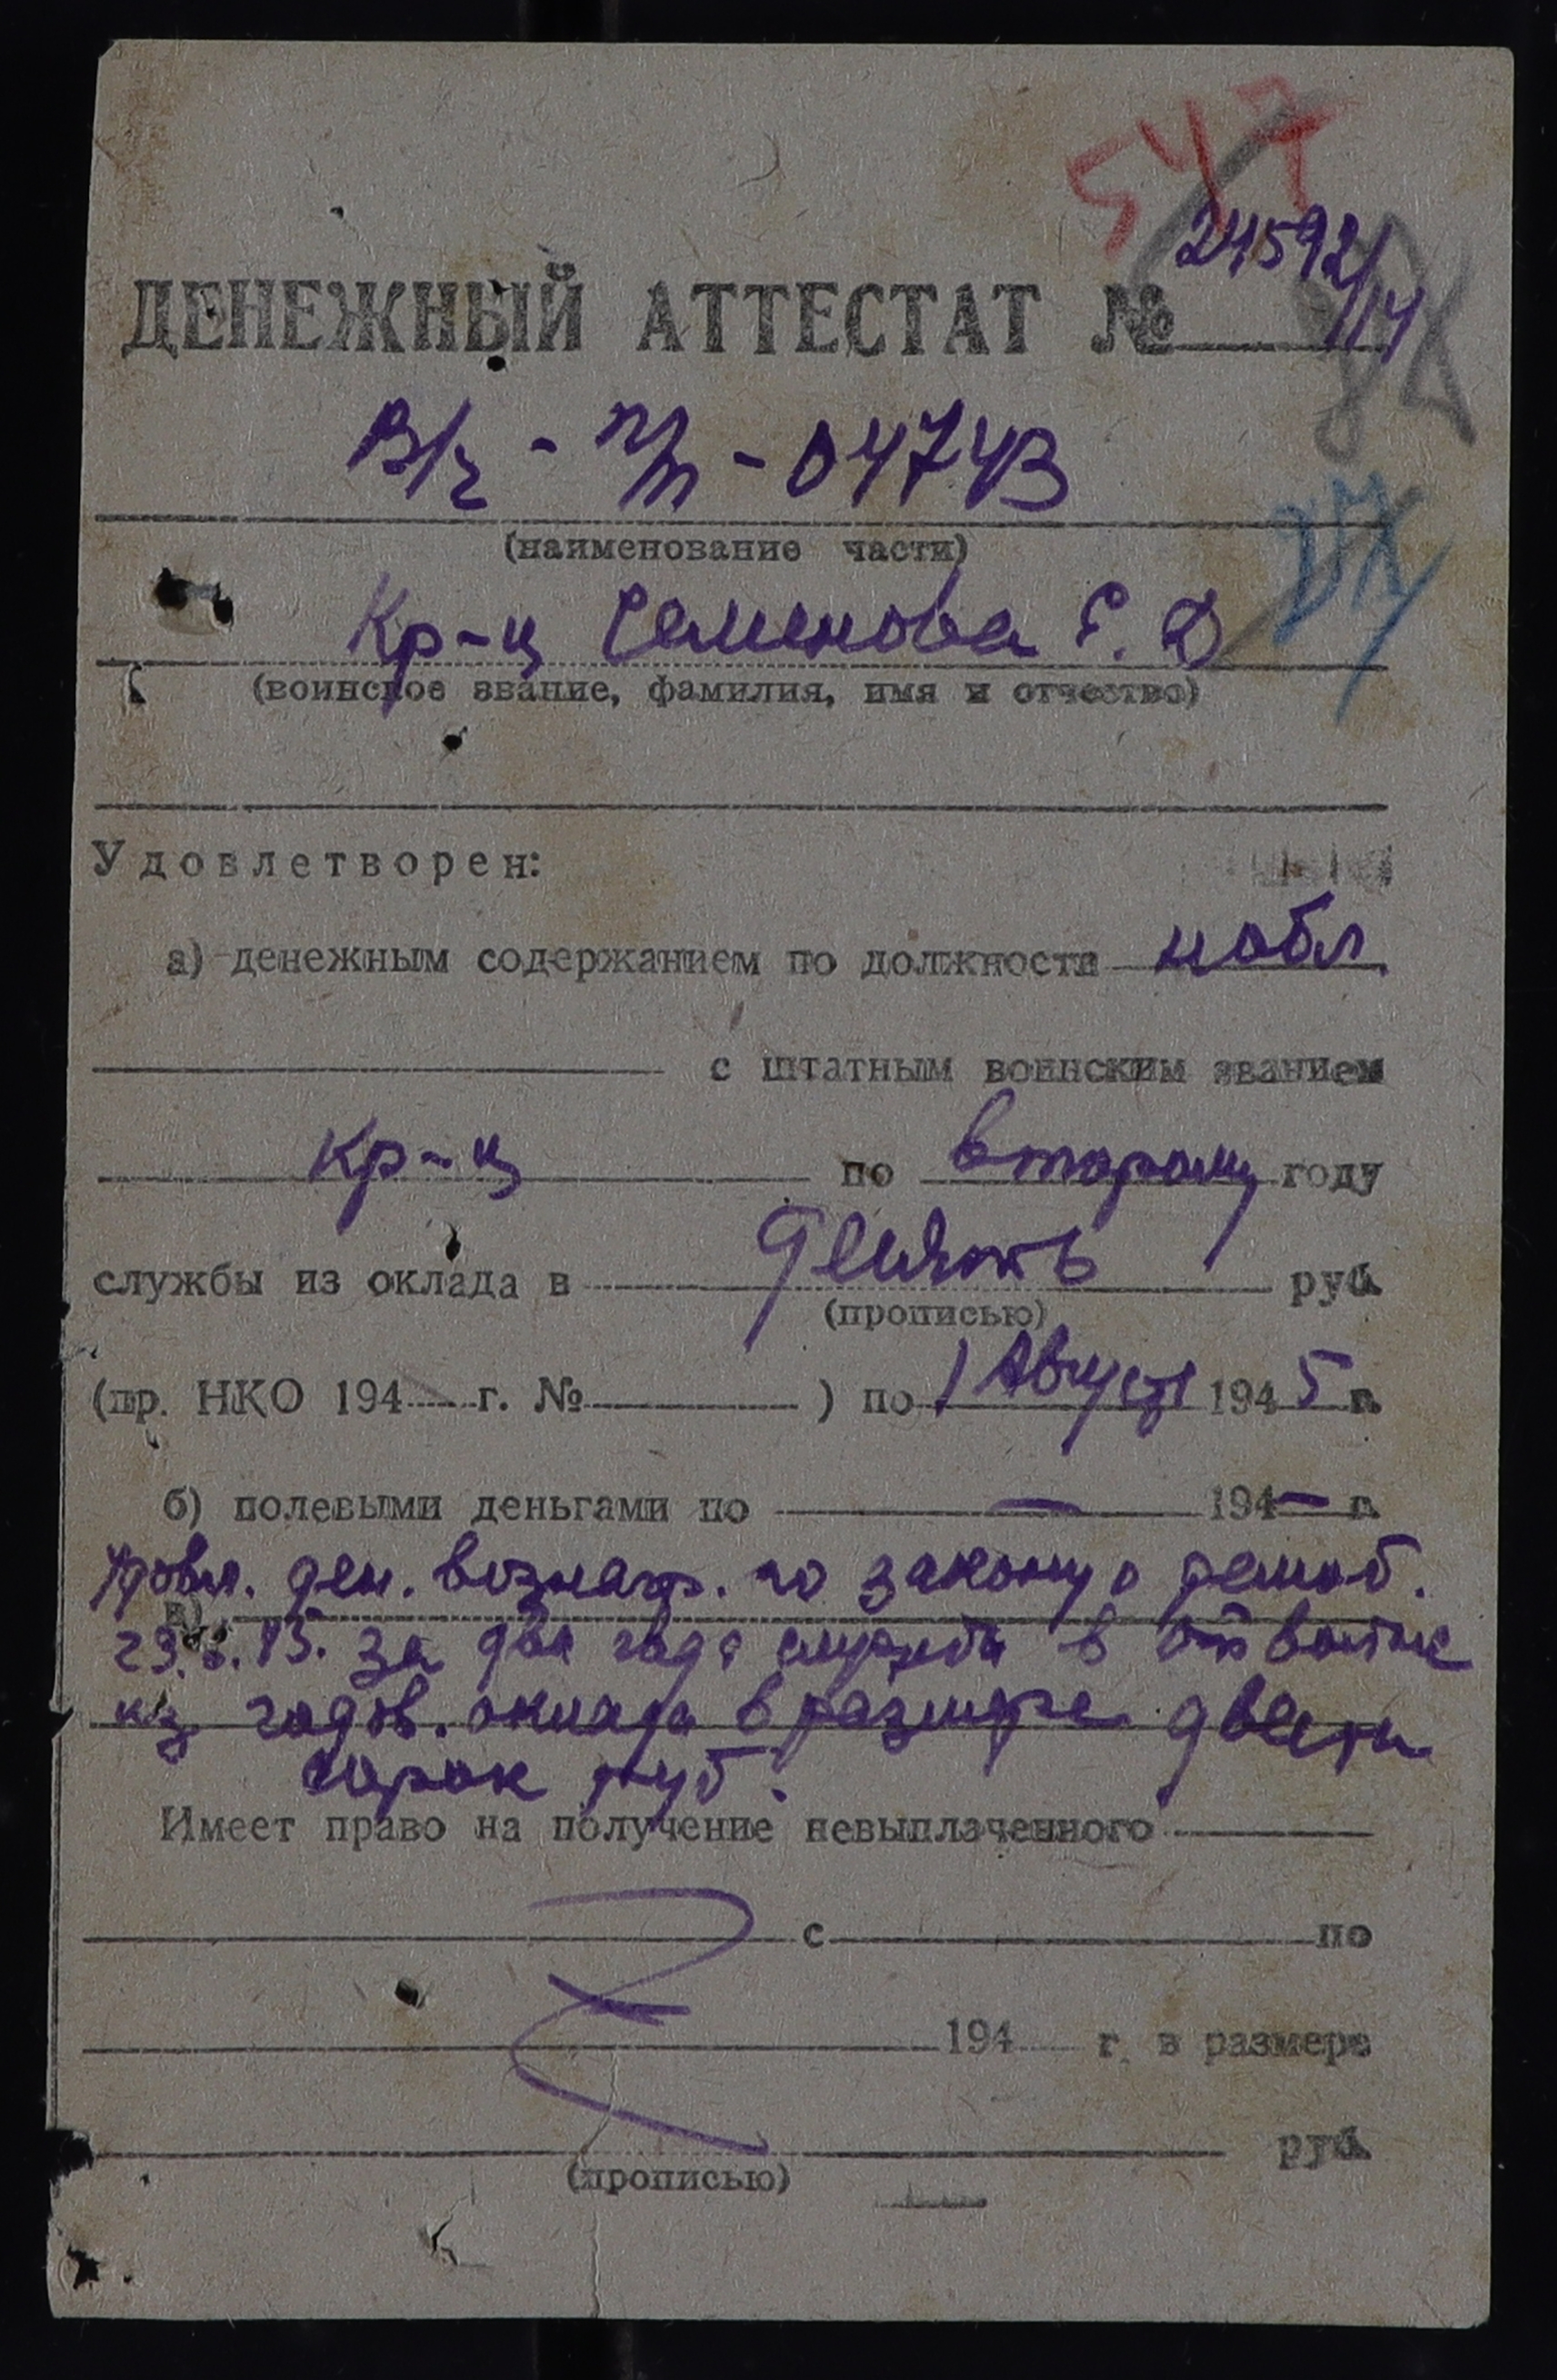 547
24592/14
ДЕНЕЖНЫЙ АТТЕСТАТ №
В/ч - п/п - 04743
(наименование части)
Кр-ц Семенова Е. Д
(воинское звание, фамилия, имя и отчество)
Удовлетворен:
а) денежным содержанием по должности набл.
с штатным воинским званием
кр-ц по второму году
службы из оклада в десять руб.
(прописью)
(пр. НКО 194 г. № ) по 1 Август 1945 г.
б) полевыми деньгами по — 194— г.
Удовл. ден. вознагр. по закону о демоб.
в)
23.6.45. за два года службы в
из годов. оклада в размере двести
сорок руб.
Имеет право на получение невыплаченного
с по
194 г. в размере
руб.
(прописью)